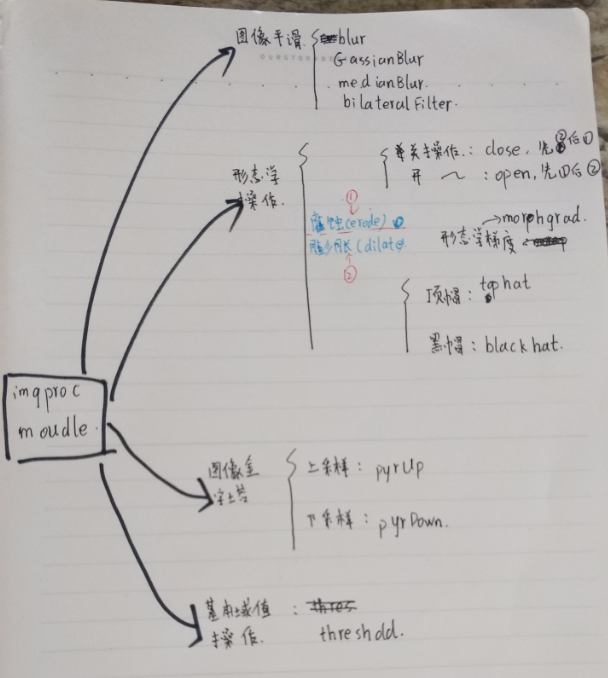 图像平滑
blur
GassianBlur
medianBlur.
bilateralFilter.
形态学
操作.
关操作.: close, 先②后①
开 ~ : open, 先①后②
①
腐蚀(erode)
膨胀(dilate
②
→morphgrad.
形态学梯度
顶帽: tophat
黑帽: blackhat.
imgproc
moudle.
图像金
字塔
上采样: pyrUp
下采样: pyrDown.
基本域值 :
操作. threshdd.